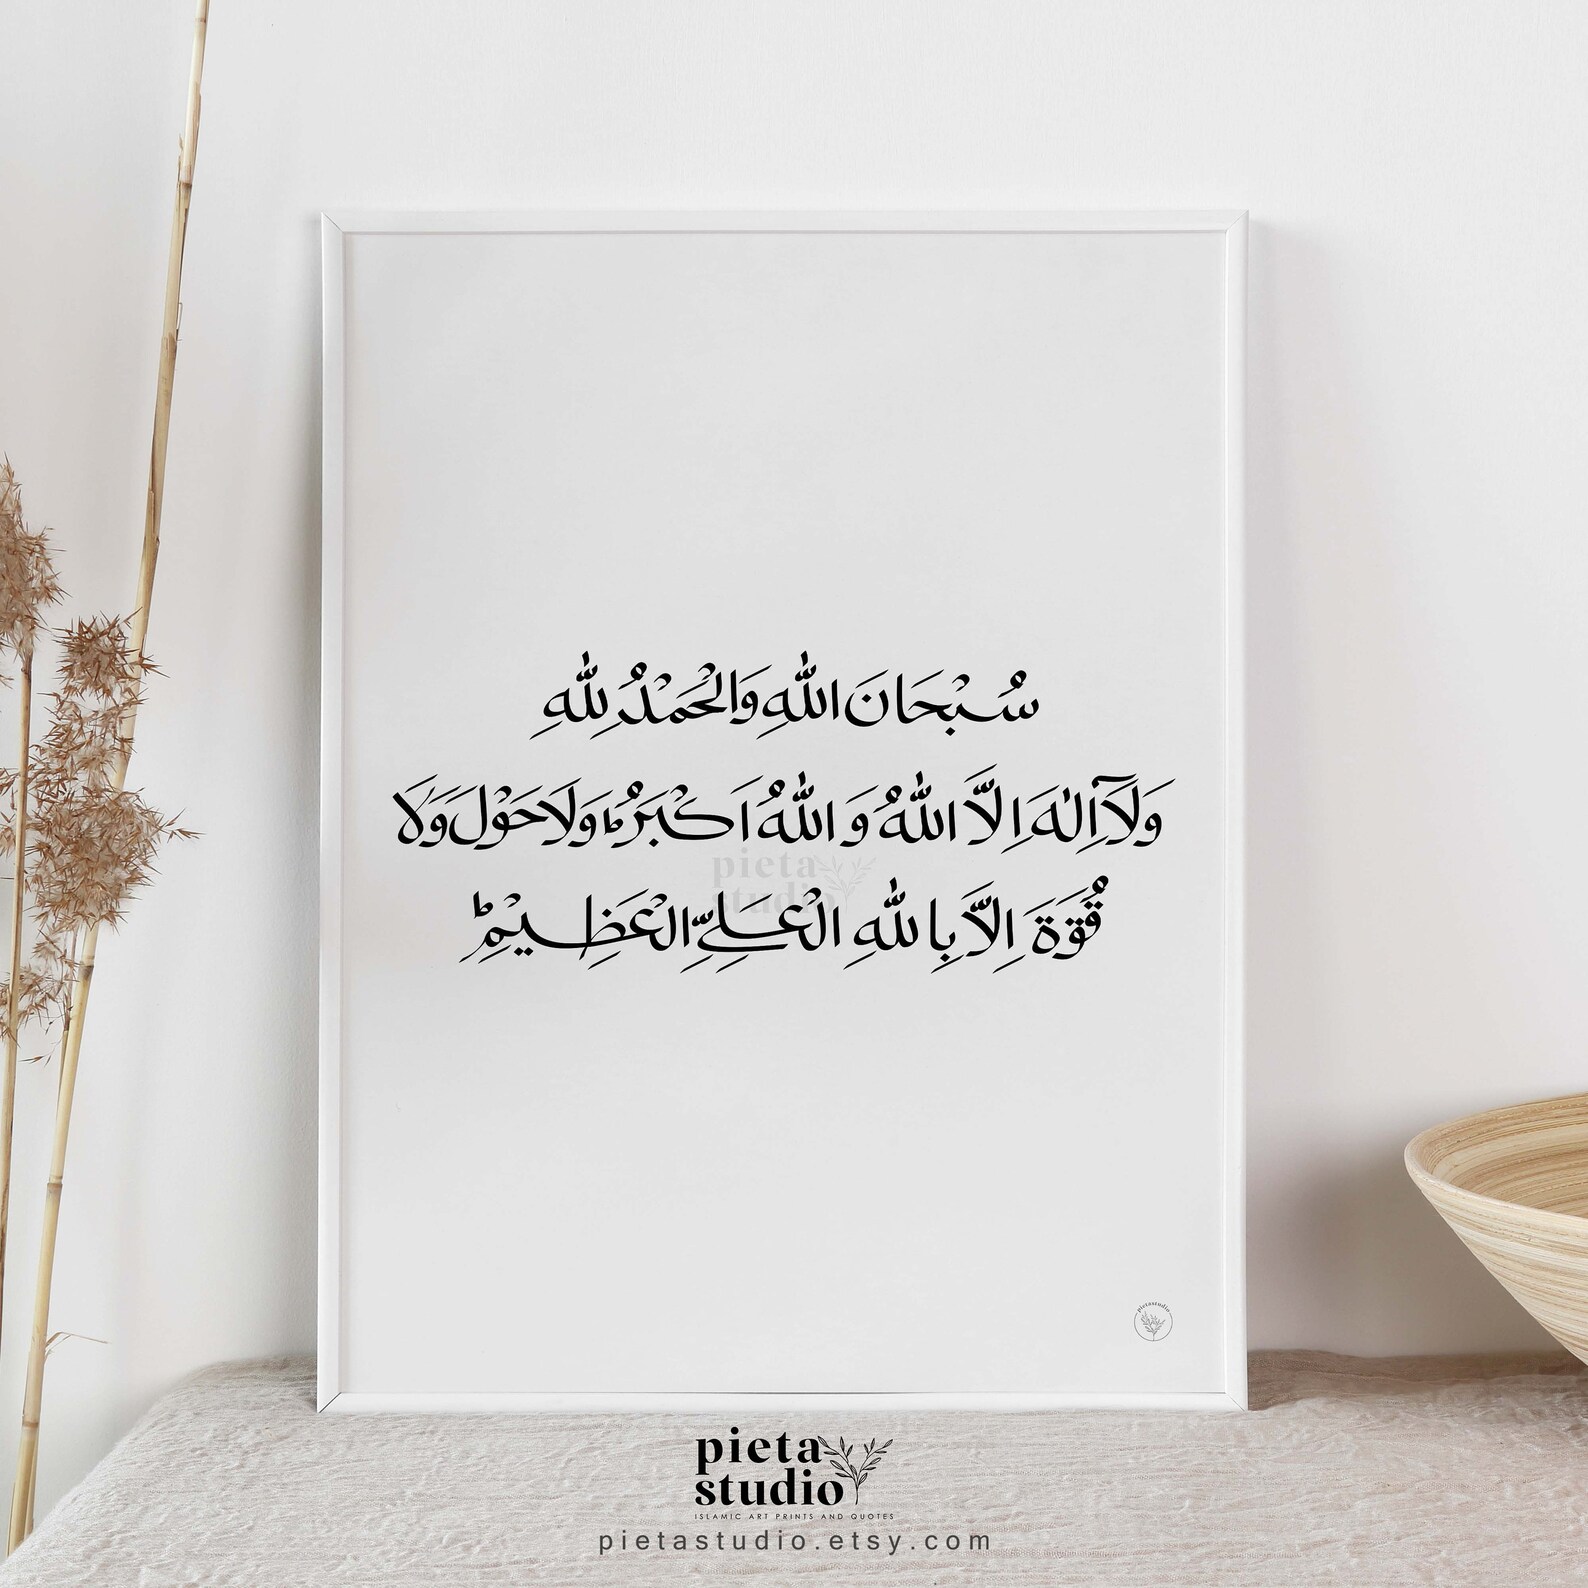 سُبْحَانَ اللّٰهِ وَالْحَمْدُ لِلّٰهِ
وَلَآ اِلٰهَ اِلَّا اللّٰهُ وَ اللّٰهُ اَكْبَرُ ؕ وَلَا حَوْلَ وَلَا
قُوَّةَ اِلَّا بِا للّٰهِ الْعَلِيِّ الْعَظِيْمِ ؕ
pieta
studio
pietastudio
pieta
studio
ISLAMIC ART PRINTS AND QUOTES
pietastudio.etsy.com